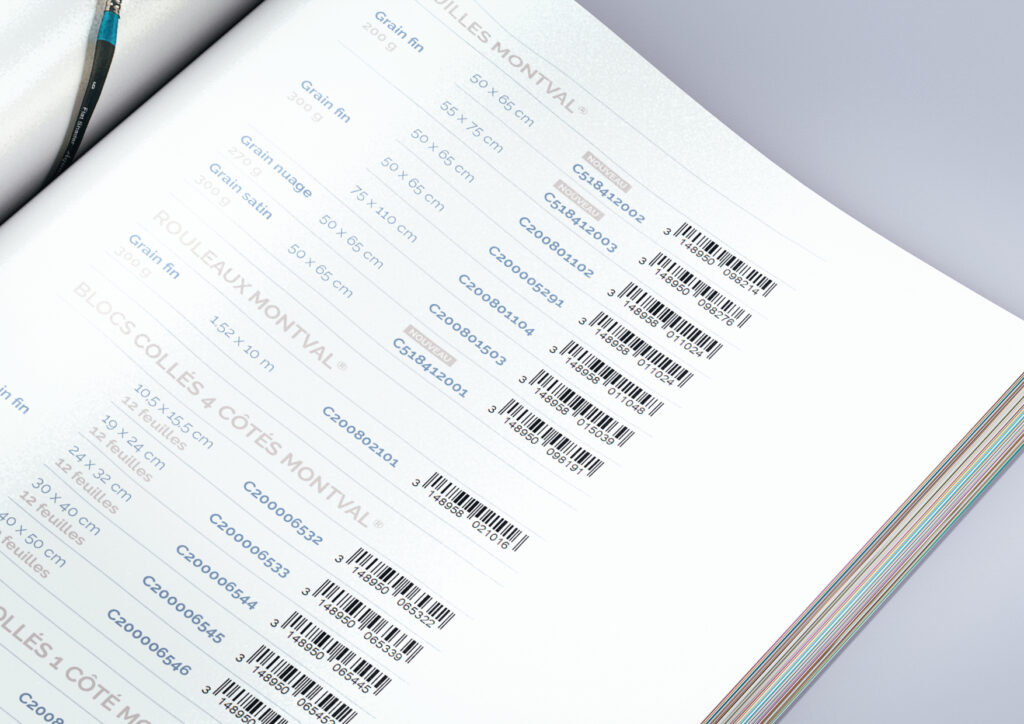 UILLES MONTVAL ®
Grain fin
200 g
50 x 65 cm
NOUVEAU
C518412002
3 148950 098214
55 x 75 cm
NOUVEAU
C518412003
3 148950 098276
Grain fin
300 g
50 x 65 cm
C200801102
3 148958 011024
50 x 65 cm
C200005291
3 148958 011024
75 x 110 cm
C200801104
3 148958 011048
Grain nuage
270 g
50 x 65 cm
C200801503
3 148958 015039
Grain satin
300 g
50 x 65 cm
NOUVEAU
C518412001
3 148950 098191
ROULEAUX MONTVAL ®
Grain fin
300 g
1.52 x 10 m
C200802101
3 148958 021016
BLOCS COLLÉS 4 CÔTÉS MONTVAL ®
in fin
10,5 x 15,5 cm
12 feuilles
C200006532
3 148950 065322
19 x 24 cm
12 feuilles
C200006533
3 148950 065339
24 x 32 cm
12 feuilles
C200006544
3 148950 065445
30 x 40 cm
12 feuilles
C200006545
3 148950
40 x 50 cm
feuilles
C200006546
3 148950
OLLÉS 1 CÔTÉ MO
C2008